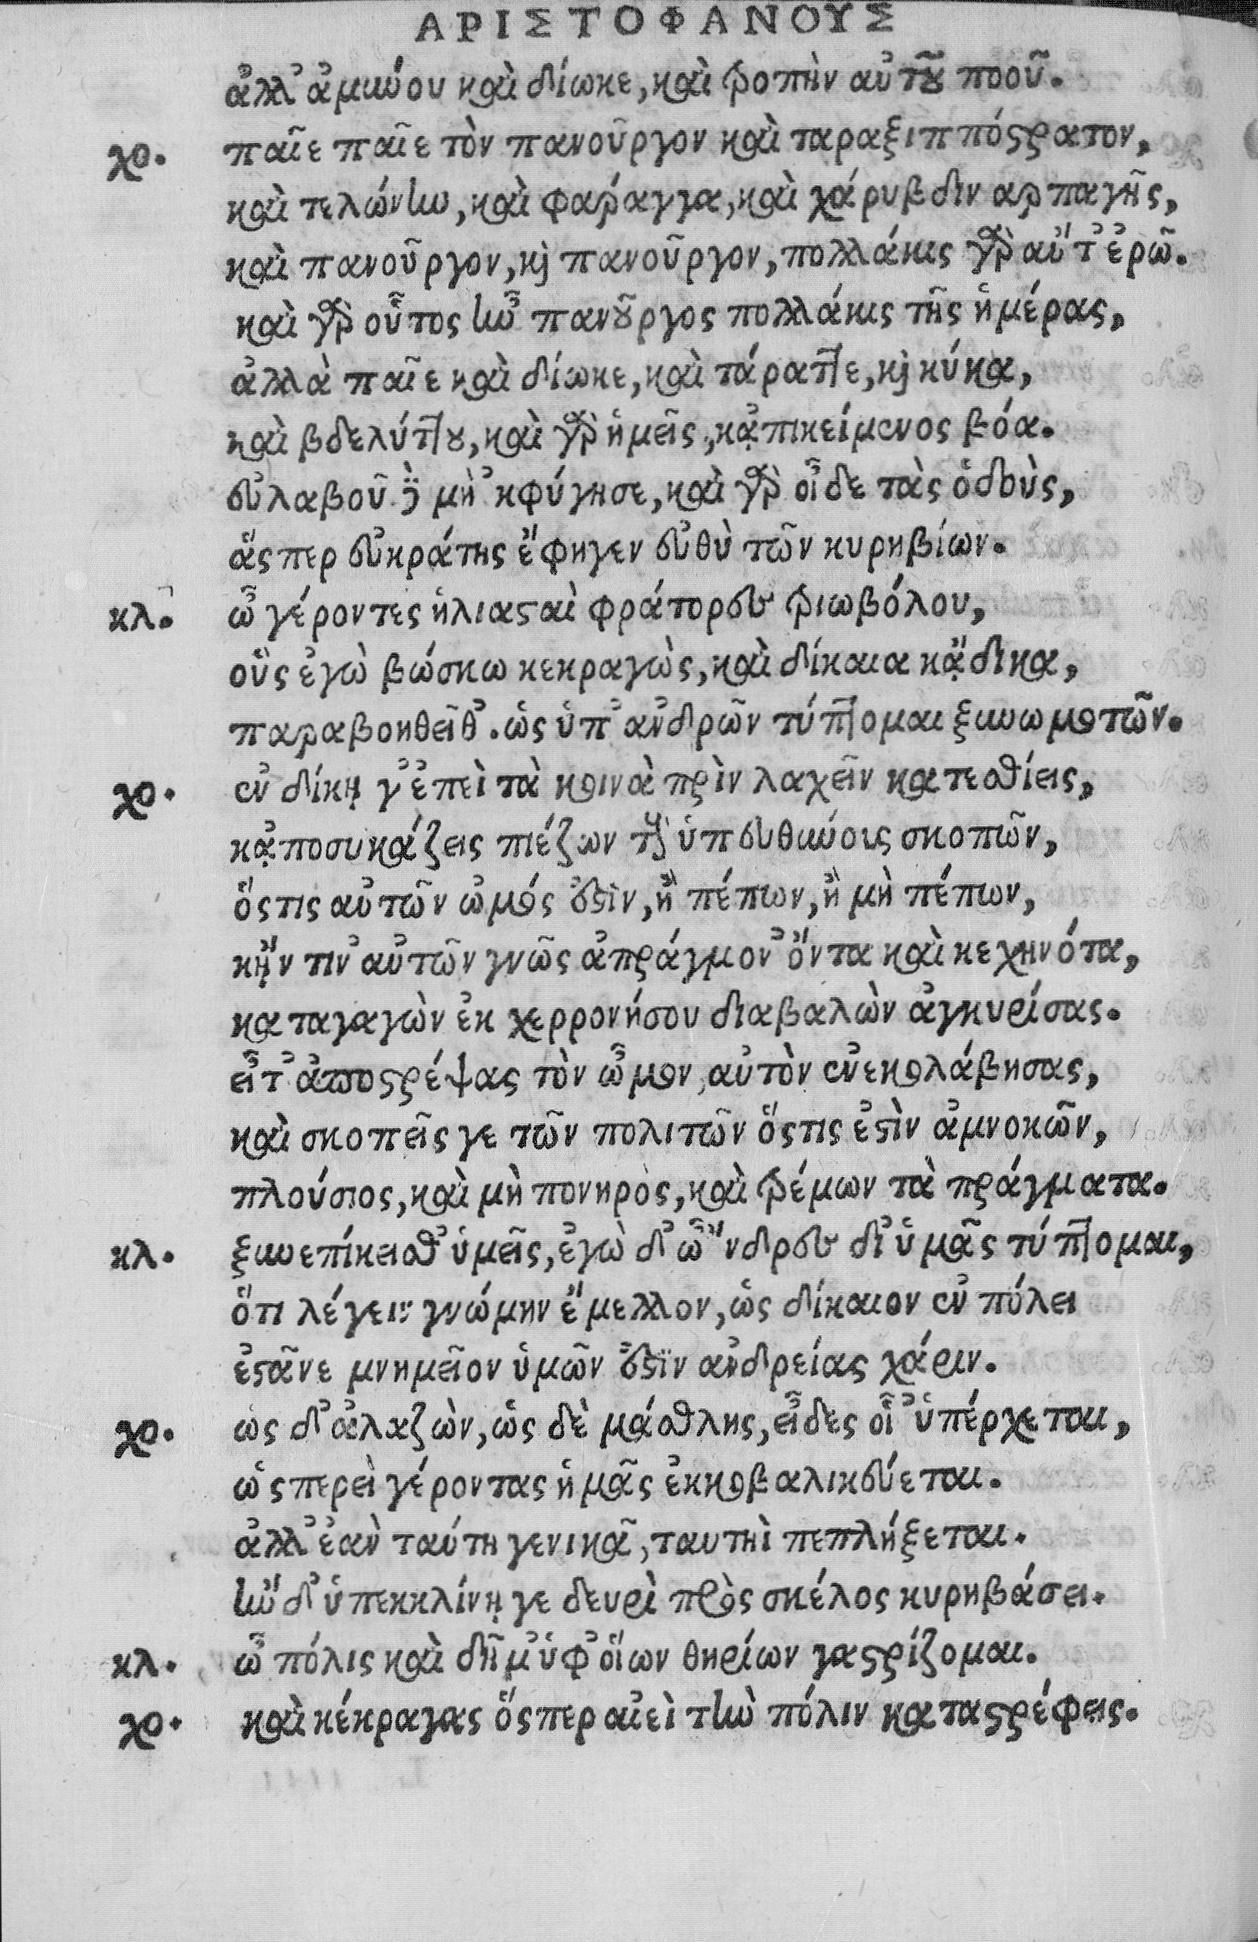 ΑΡΙΣΤΟΦΑΝΟΥΣ
ἀλλ' ἀμύνου καὶ δίωκε, καὶ τροπὴν αὐτοῦ ποοῦ.
χο. παῖε παῖε τὸν πανοῦργον καὶ ταραξιππόςρατον,
καὶ τελώνην, καὶ φάραγγα, καὶ χάρυβδιν αρπαγῆς,
καὶ πανοῦργον, κὶ πανοῦργον, πολλάκις γὰρ αὔτ' ἐρῶ.
καὶ γὰρ οὗτος ἦν πανοῦργος πολλάκις τῆς ἡμέρας,
ἀλλὰ παῖε καὶ δίωκε, καὶ τάραττε, κὶ κύκα,
καὶ βδελύττου, καὶ γὰρ ἡμεῖς, κᾀπικείμενος βόα.
εὐλαβοῦ δὲ μὴ 'κφύγησε, καὶ γὰρ οἶδε τὰς ὁδοὺς,
ἅςπερ εὐκράτης ἔφηγεν εὐθὺ τῶν κυρηβίων.
κλ. ὦ γέροντες ἡλιαςαὶ φράτορες τριωβόλου,
οὓς ἐγὼ βώσκω κεκραγὼς, καὶ δίκαια κᾄδικα,
παραβοηθεῖθ'. ὡς ὑπ' ανδρῶν τύπτομαι ξυνωμοτῶν.
χο. ἐν δίκῃ γ' ἐπεὶ τὰ κοινὰ πρὶν λαχεῖν κατεσθίεις,
κᾀποσυκάζεις πιέζων τοὺς ὑπευθύνοις σκοπῶν,
ὅςτις αὐτῶν ὠμός ἐςὶν, ἢ πέπων, ἢ μὴ πέπων,
κᾔν τιν' αὐτῶν γνῶς ἀπράγμον' ὄντα καὶ κεχηνότα,
καταγαγὼν ἐκ χερρονήσου διαβαλὼν ἀγκυρίσας.
εἶτ' ἀποςρέψας τὸν ὦμον, αὐτὸν ἐνεκολάβησας,
καὶ σκοπεῖς γε τῶν πολιτῶν ὅςτις ἐςὶν ἀμνοκῶν,
πλούσιος, καὶ μὴ πονηρὸς, καὶ τρέμων τὰ πράγματα.
κλ. ξυνεπίκεισθ' ὑμεῖς, ἐγὼ δ' ὦ 'νδρες δι' ὑμᾶς τύπτομαι,
ὅτι λέγειν γνώμην ἔμελλον, ὡς δίκαιον ἐν πόλει
ἐςᾶνε μνημεῖον ὑμῶν ἐςὶν ανδρείας χάριν.
χο. ὡς δ' ἀλαζὼν, ὡς δὲ μάσθλης, εἶδες οἷ' ὑπέρχεται,
ὡςπερεὶ γέροντας ἡμᾶς ἐκκοβαλικεύεται.
ἀλλ' ἐὰν ταύτη γενικᾶ, ταυτηὶ πεπλήξεται.
ἢν δ' ὑπεκκλίνῃ γε δευρὶ πρὸς σκέλος κυρηβάσει.
κλ. ὦ πόλις καὶ δῆμ' ὑφ' οἵων θηρίων γαςρίζομαι.
χο. καὶ κέκραγας ὅςπερ αἰεὶ τὴν πόλιν καταςρέφεις.